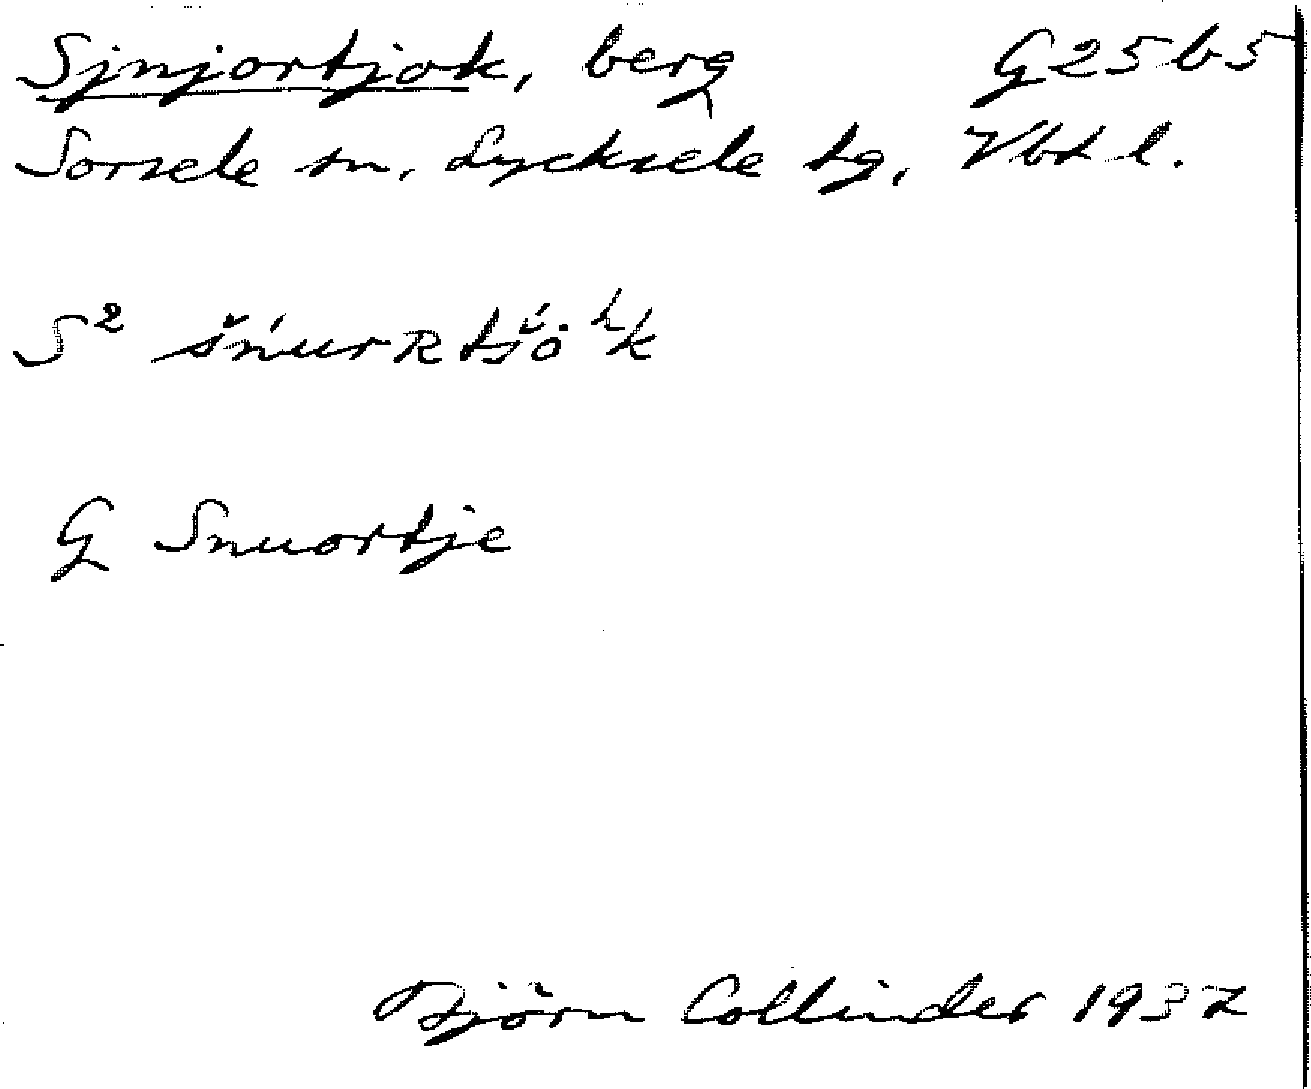 Sjnjortjok, berg G25b5
Sorsele sn, Lycksele tg, Vbt l.
S² šńurRtsi̮ö̀ʰk
G Snuortje
Björn Collinder 1937